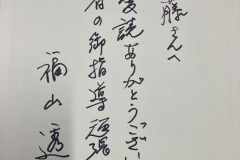 藤さんへ
愛読ありがとうござい
者の御指導頑張
福山透